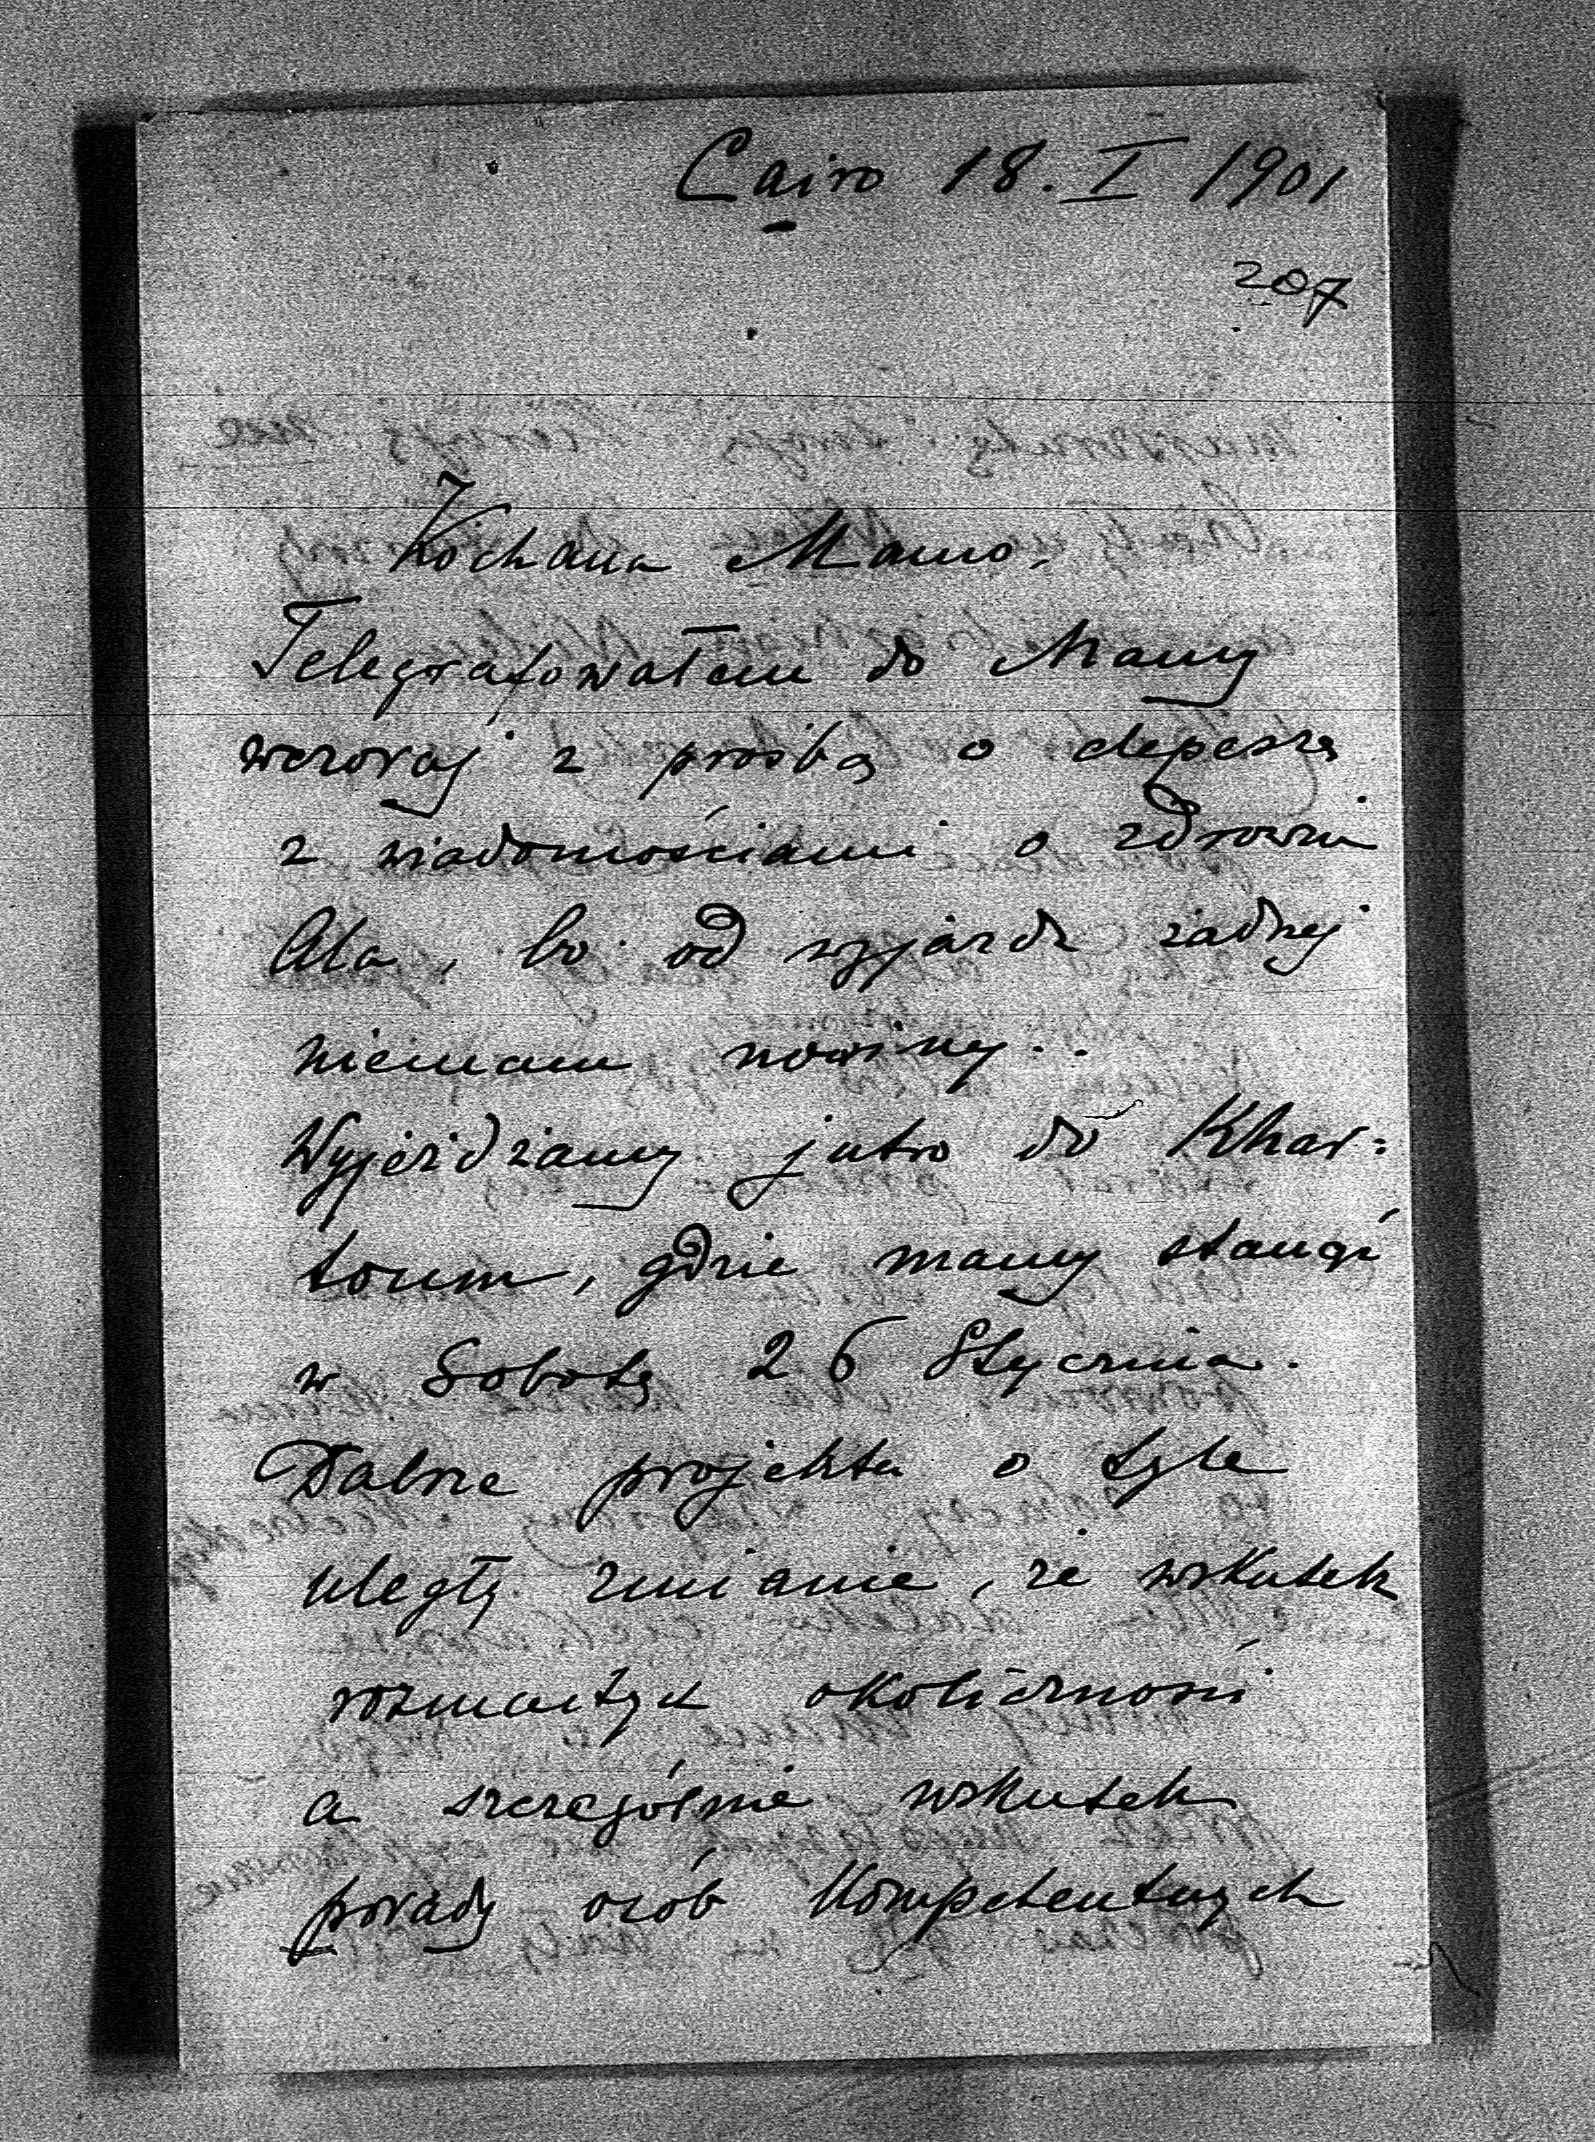 Cairo 18. I 1901
207
Kochana Mamo,
Telegrafowałem do Mamy
wczoraj z prośbą o depeszę
z wiadomościami o zdrowiu
Ala, bo od wyjazdu żadnej
niemam nowiny..
Wyjeżdżamy jutro do Khar=
toum, gdzie mamy stanąć
w Sobotę 26 Stycznia.
Dalsze projekta o tyle
uległy zmianie, że wskutek
rozmaitych okoliczności
a szczególnie wskutek
porady osób kompetentnych